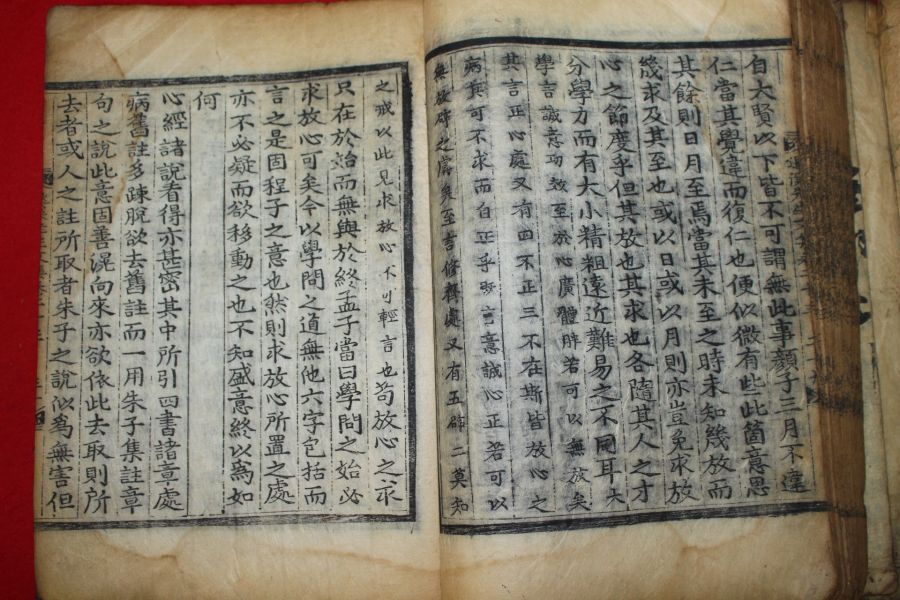 自大賢以下皆不可謂無此事顏子三月不違
仁當其覺違而復仁也便似微有些此箇意思
其餘則日月至焉當其未至之時未知幾放而
幾求及其至也或以日或以月則亦豈免求放
心之節度乎但其放也其求也各隨其人之才
分學力而有大小精粗遠近難易之不同耳大
學言誠意功效至於心廣體胖若可以無放矣
其言正心處又有四不正三不在斯皆放心之
病其可不求而自正乎旣言意誠心正若可以
無放辟之虞矣至言修齊處又有五辟二莫知
之戒以此見求放心不可輕言也苟放心之求
只在於治而無與於終孟子當曰學問之始必
求放心可矣今以學問之道無他六字包括而
言之是固程子之意也然則求放心所置之處
亦不必疑而欲移動之也不知盛意終以爲如
何
心經諸說看得亦甚密其中所引四書諸章處
病舊註多疎脫欲去舊註而一用朱子集註章
句之說此意固善滉向來亦欲依此去取則所
去者或人之註所取者朱子之說似爲無害但